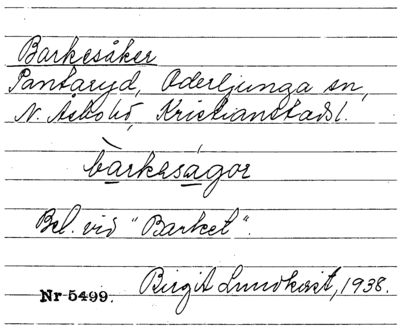 Barkesåker
Pantaryd, Oderljunga sn,
N. Åsbo hd, Kristianstads l.
bàrkəságor
Bel. vid "Barket".
Birgit Lundkvist, 1938.
Nr 5499.